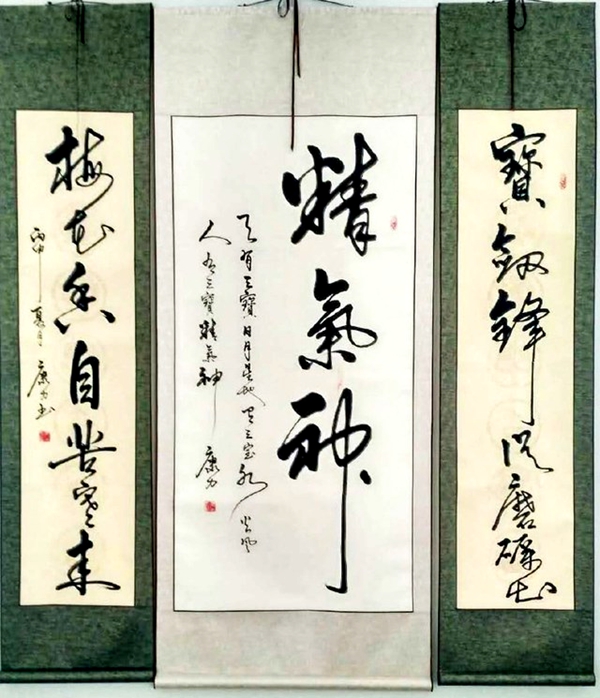 寶劔鋒從磨礪出
精氣神
天有三寶日月星地有三宝水火風
人有三寶精氣神 康力
梅花香自苦寒来
丙申夏月 康力书